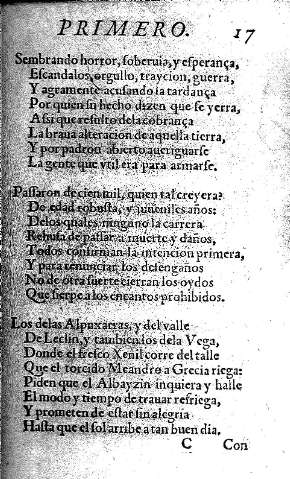 PRIMERO. 17
Sembrando horror, soberuia, y esperança,
Escandalos, orgullo, traycion, guerra,
Y agramente acusando la tardança
Por quien su hecho dizen que se yerra,
Assi que resulto dela cobrança
La braua alteracion de aquesta tierra,
Y por padron abierto aueriguarse
La gente que vtil era para armarse.
Passaron de cien mil, quien tal creyera?
De edad robusta, y juueniles años:
Delos quales ninguno la carrera
Rehusa de passar a muerte y daños,
Todos confirman la intencion primera,
Y para renunciar los desengaños
No de otra suerte cierran los oydos
Que sierpe a los encantos prohibidos.
Los delas Alpuxarras, y del valle
De Leclin, y tambien los dela Vega,
Donde el fresco Xenil corre del talle
Que el torcido Meandro a Grecia riega:
Piden que el Albayzin inquiera y halle
El modo y tiempo de trauar refriega,
Y prometen de estar sin alegria
Hasta que el sol arribe a tan buen dia.
C Con